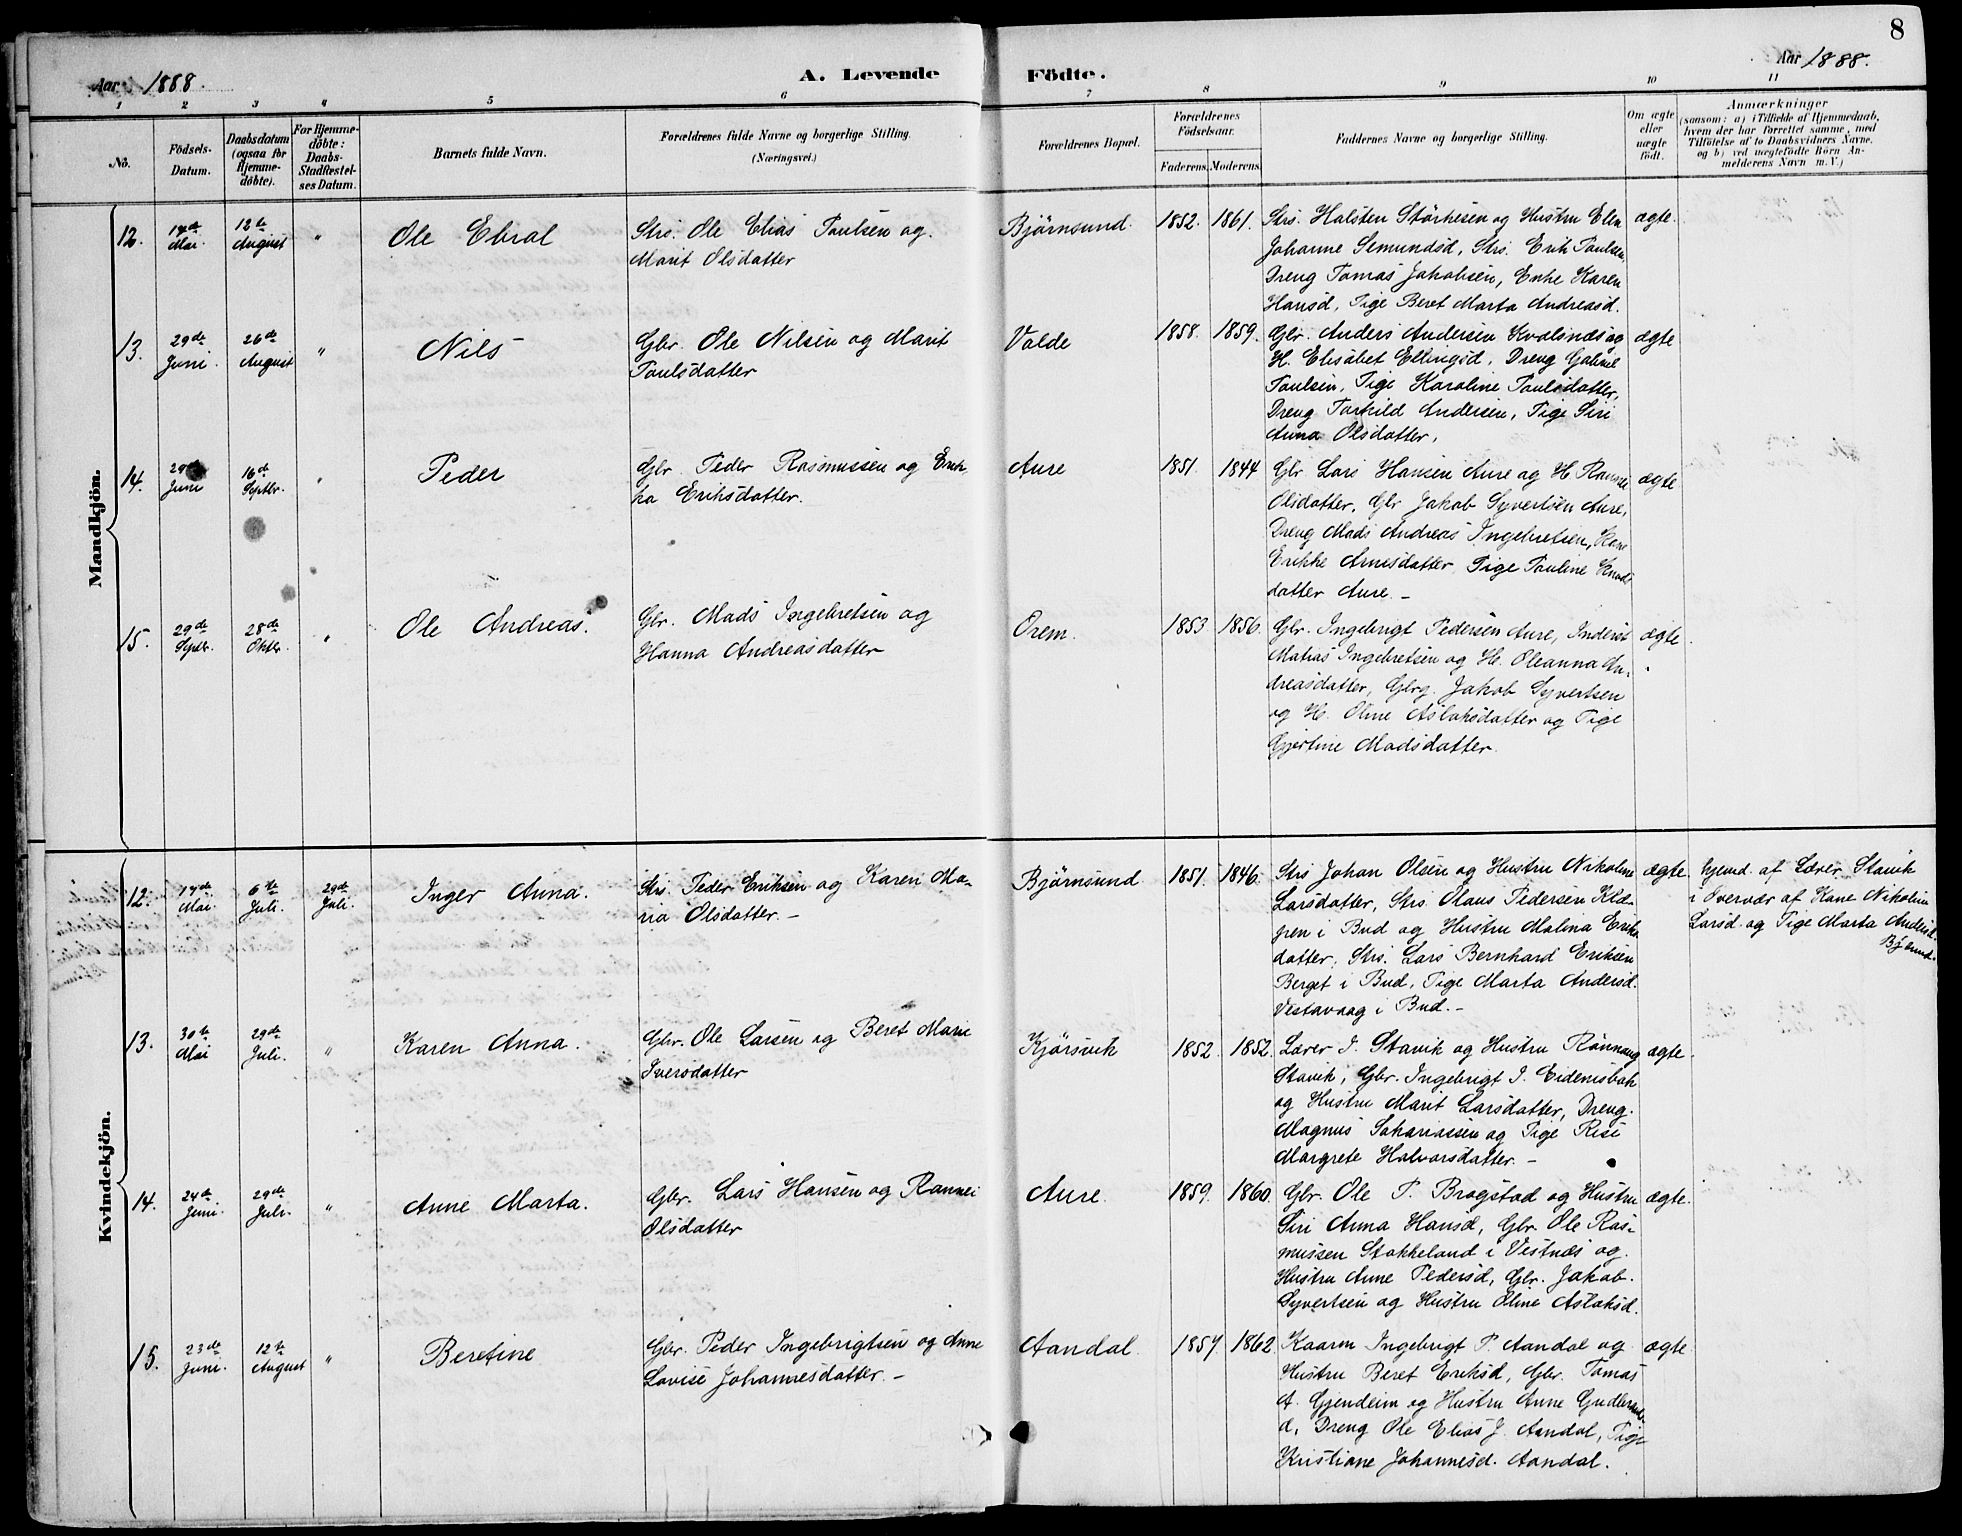 8
Aar 1888.
A. Levende
Födte.
Aar 1888.
1 2 3 4 5 6 7 8 9 10 11
No.
Fødsels-
Datum.
Daabsdatum
(ogsaa for
Hjemme-
døbte).
For Hjemme-
døbte:
Daabs-
Stadfestel-
ses Datum.
Barnets fulde Navn.
Forældrenes fulde Navne og borgerlige Stilling.
(Næringsvei.)
Forældrenes Bopæl.
Forældrenes
Födselsaar.
Faderens. Moderens.
Faddernes Navne og borgerlige Stilling.
Om ægte
eller
uægte
født.
Anmærkninger
(saasom: a) i Tilfælde af Hjemmedaab,
hvem der har forrettet samme, med
Tilföielse af to Daabsvidners Navne,
og b) ved uægtefødte Børn An-
melderens Navn m. V.)
Mandkjön.
12.
de
Mai.
12te
August
"
Ole Edval
Strs. Ole Elias Paulsen og
Marit Olsdatter
Bjørnsund.
1852. 1861.
Strs. Halsten Størkesen og Hustru Elen
Johanne Semundsd, Strs. Erik Paulsen,
Dreng Tomas Jakobsen, Enke Karen
Hansd, Pige Beret Marta Andreasd.
ægte.
13.
29de
Juni.
26de
August
"
Nils
Gbr. Ole Nilsen og Marit
Paulsdatter
Valde
1858. 1859.
Gbr. Anders Andersen Kvalsnæs og
H. Elisabet Ellingsd, Dreng Gabriel
Paulsen, Pige Karoline Paulsdatter,
Dreng Torkild Andersen, Pige Siri
Anna Olsdatter.
ægte
14.
29
Juni
16de
Septbr.
"
Peder
Gbr. Peder Rasmussen og Erik-
ka Eriksdatter.
Aure
1851. 1844
Gbr Lars Hansen Aure og H. Rannei
Olsdatter, Gbr Jakob Syvertsen Aure,
Dreng Mads Andreas Ingebretsen, Kone
Erikke Arnesdatter, Pige Pauline Knuds-
datter Aure. –
ægte
15.
29de
Septbr.
28de
Oktbr.
"
Ole Andreas.
Gbr. Mads Ingebretsen og
Hanna Andreasdatter
Orem.
1853. 1856.
Gbr. Ingebrigt Pedersen Aure, Inderst
Matias Ingebretsen og H. Oleanna An-
dreasdatter, Gbrg. Jakob Syvertsen
og H. Oline Aslaksdatter og Pige
Gjertine Madsdatter.
ægte
Kvindekjön.
12.
de
Mai.
6te
Juli.
29de
Juli.
Inger Anna.
Strs. Peder Eriksen og Karen Ma-
ria Olsdatter. –
Bjørnsund
1851. 1846.
Strs Johan Olsen og Hustru Nikoline
Larsdatter, Strs. Olaus Pedersen Klæ-
pen i Bud og Hustru Malina Eriks-
datter, Strs. Lars Bernhard Eriksen
Berget i Bud, Pige Marta Andersd.
Vestavaag i Bud. –
ægte
hjemd. af Lærer Stavik
i Overvær af Kone Nikoline
Larsd. og Pige Marta Andersd.
13.
30te
Mai
29de
Juli.
"
Karen Anna.
Gbr. Ole Larsen og Beret Marie
Iversdatter
Kjørsvik
1852. 1852.
Lærer I. Stavik og Hustru Rønnaug
Stavik, Gbr. Ingebrigt I. Eidemsbak
og Hustru Marit Larsdatter, Dreng
Magnus Sakariassen og Pige Risi
Margrete Halvorsdatter. –
ægte.
14.
24de
Juni.
29de
Juli.
"
Anne Marta.
Gbr. Lars Hansen og Rannei
Olsdatter
Aure.
1859. 1860.
Gbr. Ole P. Bragstad og Hustru
Siri Anna Hansd, Gbr. Ole Ras-
mussen Stokkeland i Vestnæs og
Hustru Anne Pedersd, Gbr. Jakob
Syvertsen og Hustru Oline Aslaksd.
ægte.
15.
23de
Juni.
12te
August
"
Beretine
Gbr. Peder Ingebrigtsen og Anne
Lovise Johannesdatter. –
Aandal.
1857. 1862.
Kaarm Ingebrigt P. Aandal og
Hustru Beret Eriksd, Gbr. Tomas
A. Gjendeim og Hustru Anne
d, Dreng Ole Elias J. Aandal, Pige
Kristiane Johannesd. Aandal.
ægte